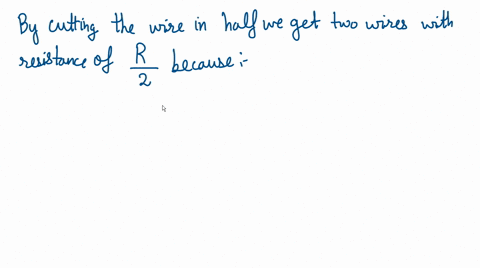 By cutting the wire in half we get two wires with
resistance of R/2 because :-